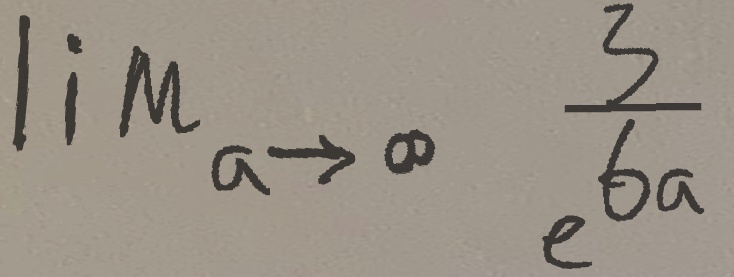 lim a→∞ 3/e^6a